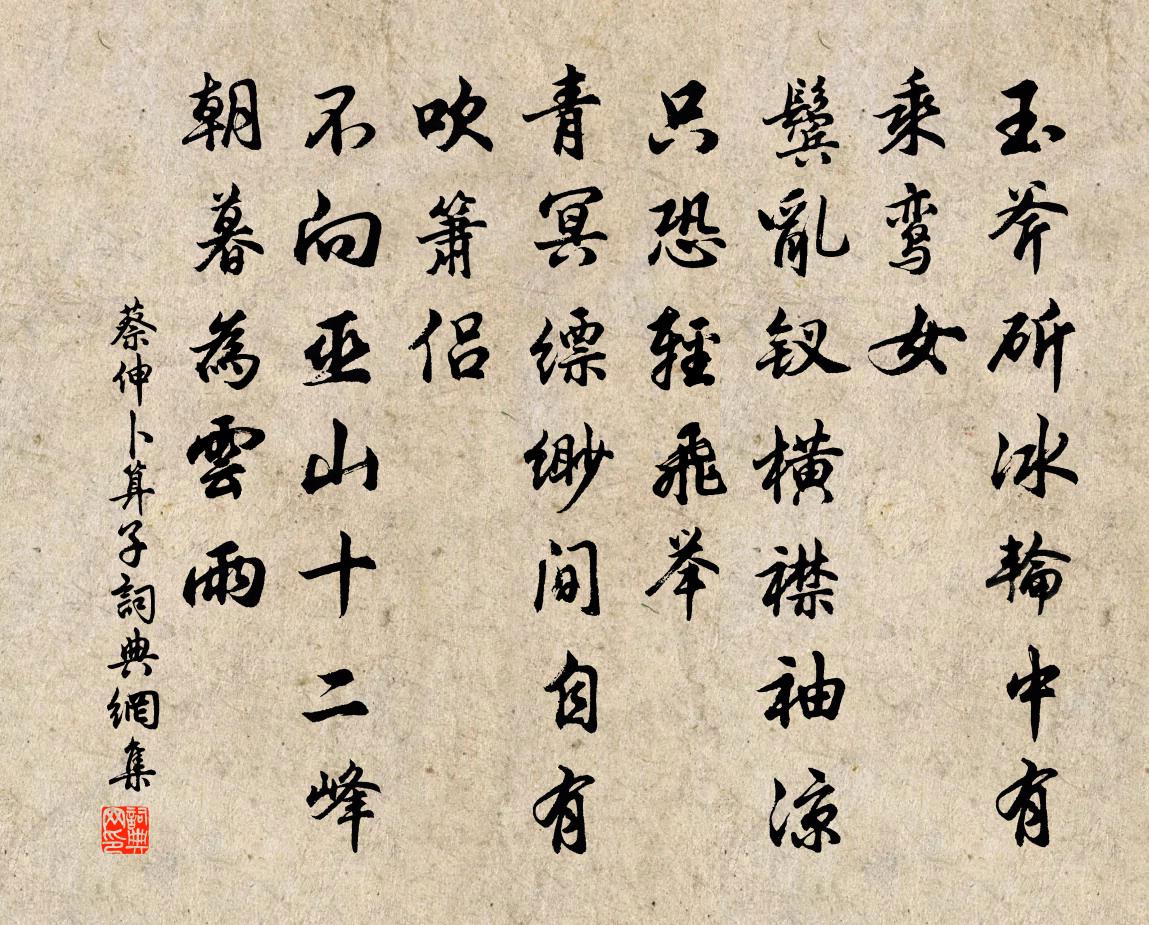 玉斧斫冰輪中有
乘鸾女
鬓亂钗橫襟袖涼
只恐輕飛举
青冥缥缈间自有
吹簫侣
不向巫山十二峰
朝暮為雲雨
蔡伸卜算子詞典網集
詞典网印